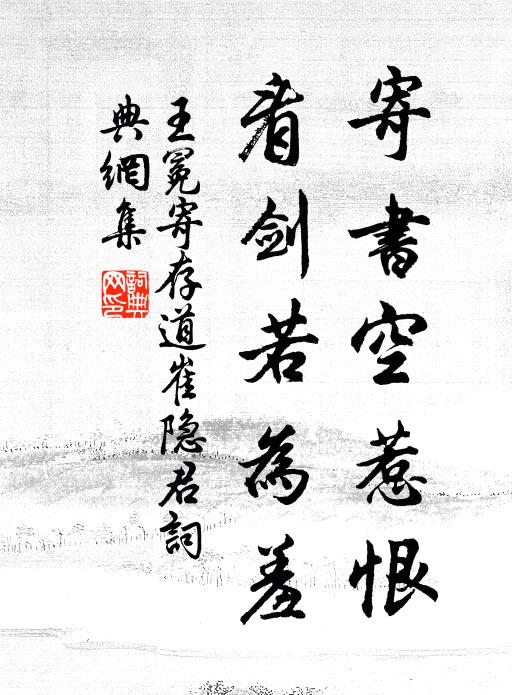 寄書空惹恨
看劍若為羞
王冕寄存道崔隐君詞
典網集
詞典网印